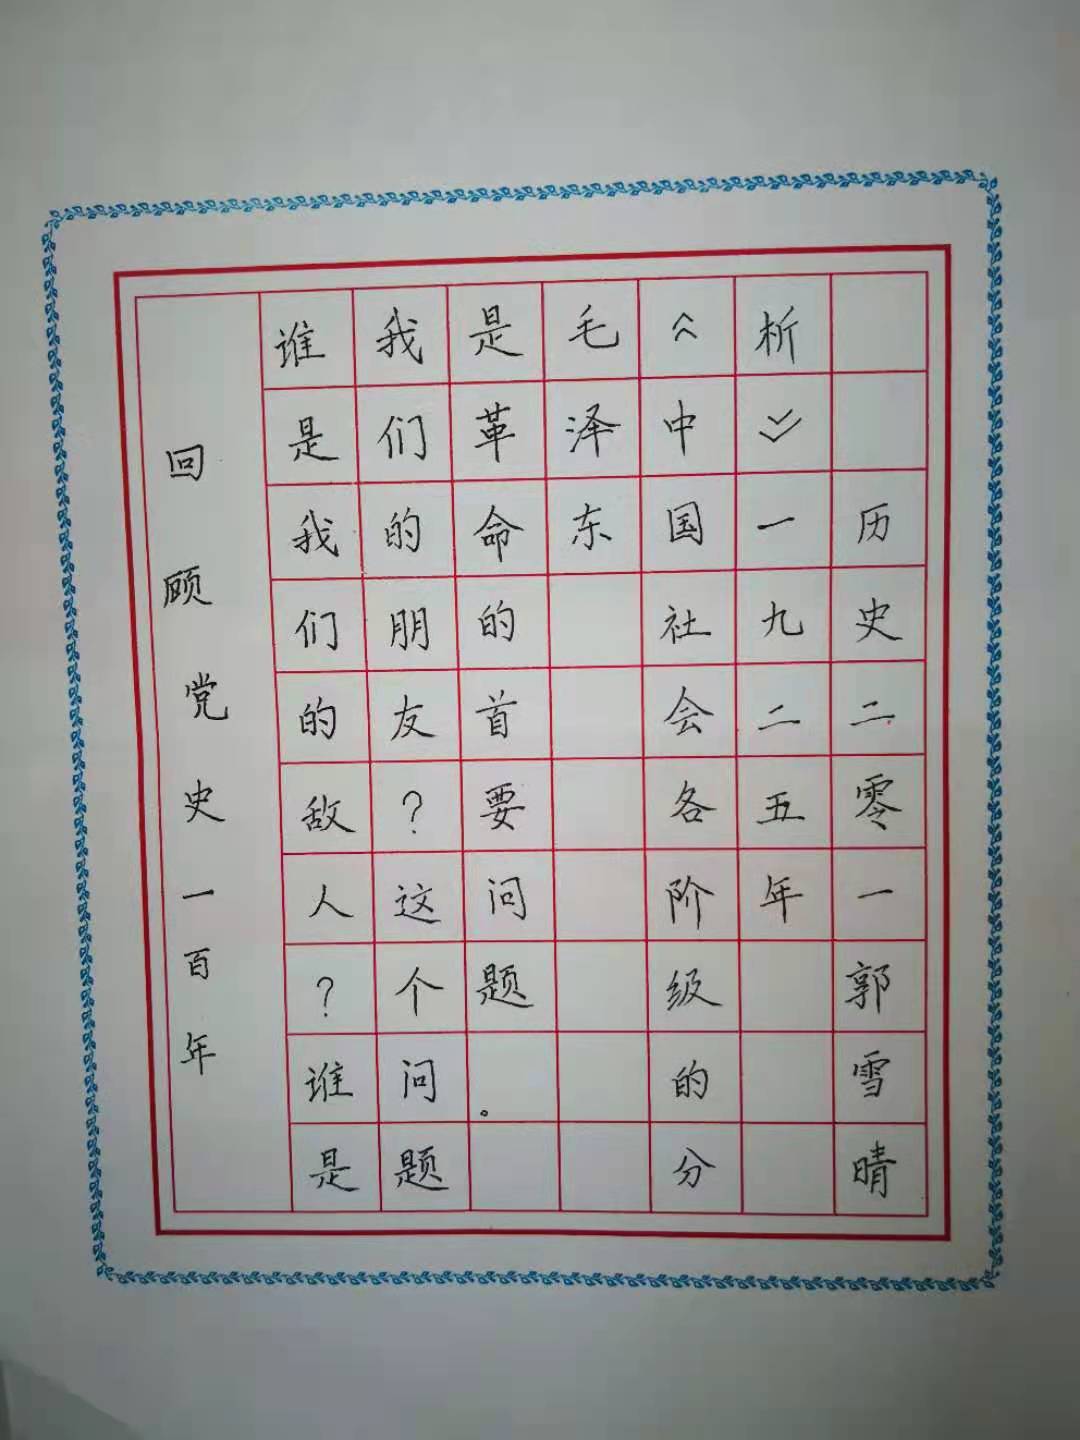 回顾党史一百年
谁是我们的敌人？谁是
我们的朋友？这个问题
是革命的首要问题。
毛泽东
《中国社会各阶级的分
析》一九二五年
历史二零一郭雪晴